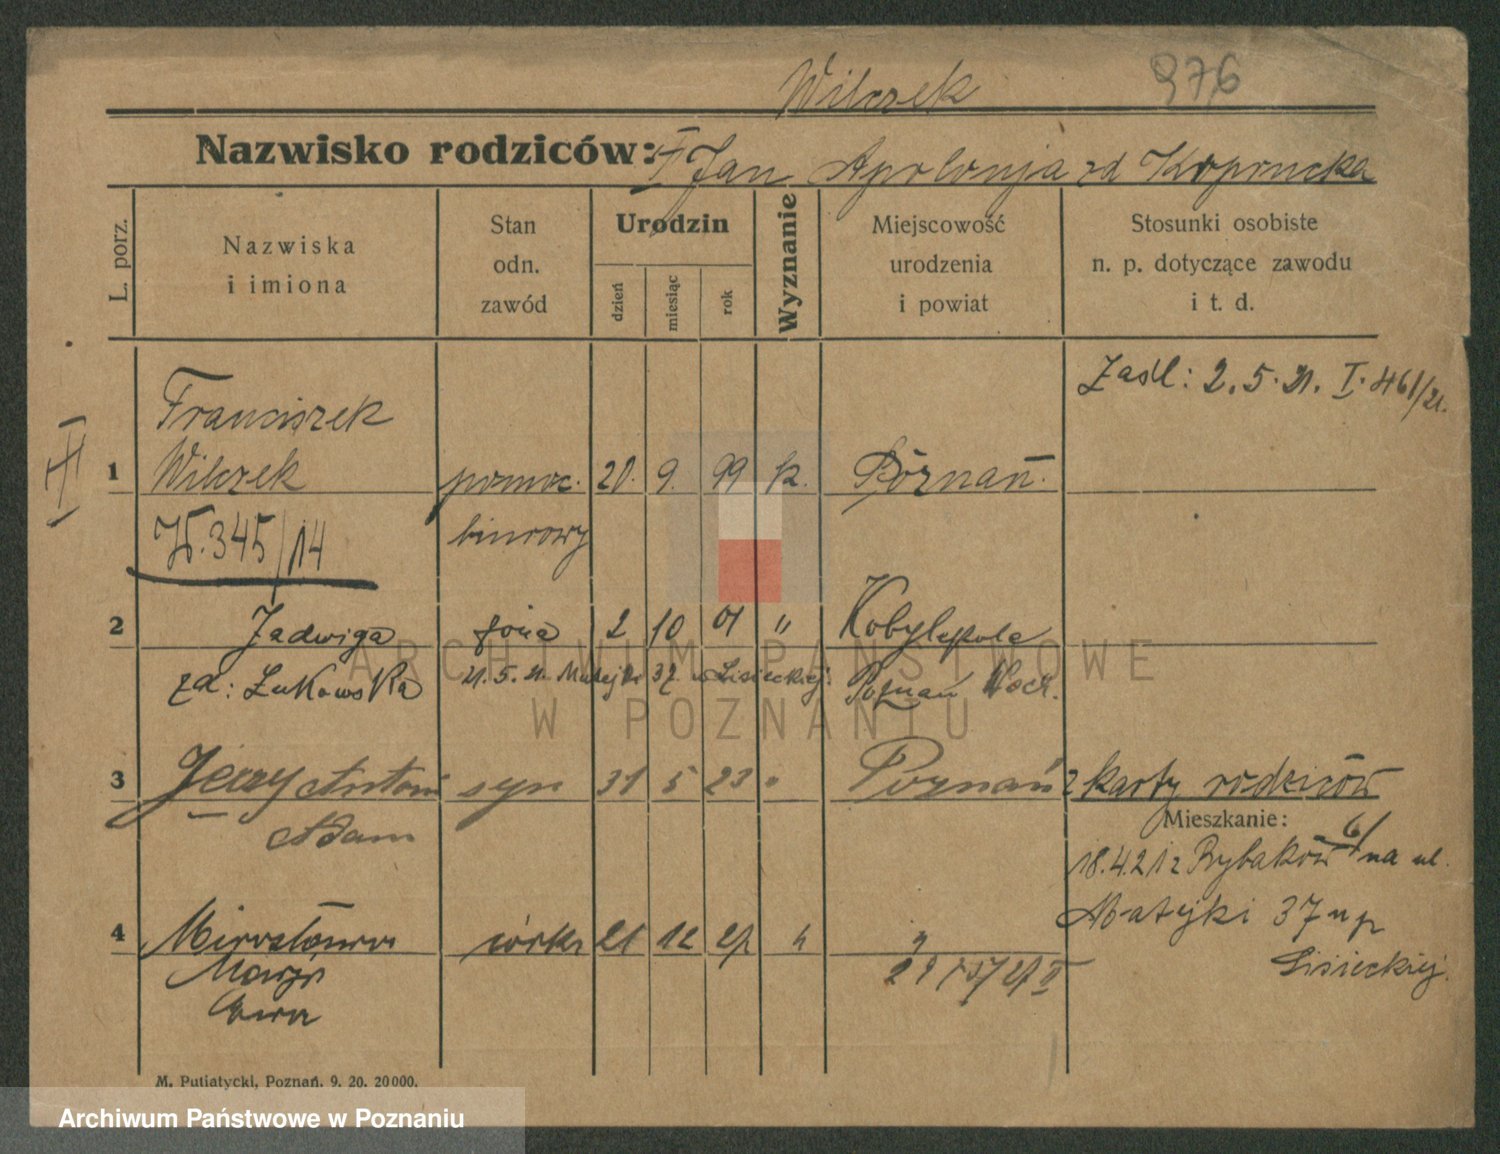 Wilczek 976
Nazwisko rodziców: Jan Apolonja zd
L. porz.
Nazwiska
i imiona
Stan
odn.
zawód
Urodzin
dzień
miesiąc
rok
Wyznanie
Miejscowość
urodzenia
i powiat
Stosunki osobiste
n. p. dotyczące zawodu
i t. d.
Zaśl: 2. 5. 21. I. 461/21.
Franciszek
1 Wilczek pomoc. 20. 9. 99 k. Poznań.
biurowy
345/14
2 Jadwiga żona 2 10 01 " Kobylepole
zd: Łukowska 21. 5. 21. Matejki 37 u Lisieckiej. Poznań Wsch.
3 Jerzy Antoni syn 31 5 23 " Poznań z karty rodziców
Adam
Mieszkanie:
18.4.21 z Rybaków 6/ na ul.
Matejki 37 u p
Lisieckiej.
4 Mirosława córka 21 12
Marja
M. Putiatycki, Poznań. 9. 20. 20000.
ARCHIWUM PAŃSTWOWE
W POZNANIU
Archiwum Państwowe w Poznaniu